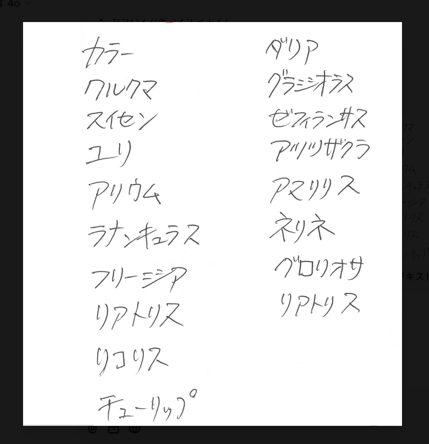 カラー
クルクマ
スイセン
ユリ
アリウム
ラナンキュラス
フリージア
リアトリス
リコリス
チューリップ
ダリア
グラジオラス
ゼフィランサス
アッツザクラ
アマリリス
ネリネ
グロリオサ
リアトリス